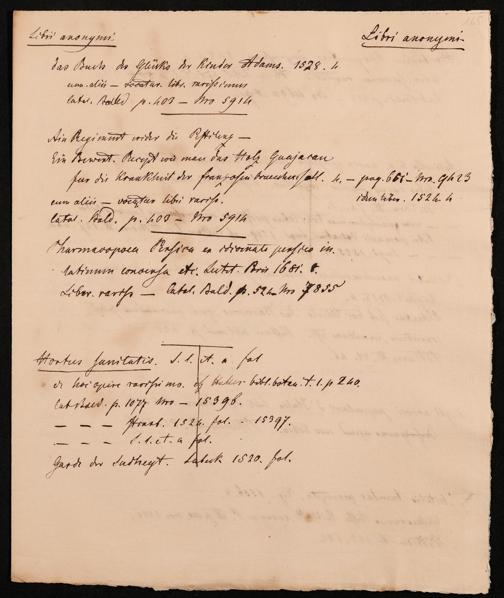 Libri anonymi.
Libri anonymi.
das Buch des Glücks der Kinder Adams. 1528. 4
cum aliis — vocatur libr. rarissimus
Catal. Bald p. 403 — Nro 5914
Ein Regiment wider die Pestilenz —
Ein Bewert. Recept wie man das Holz Guajacan
für die Krankheit der französen brauchen soll. 4. — pag. 661 — Nro. 9423
cum aliis — vocatur libr. rariss. idem liber. 1524. 4
Catal. Bald. p. 403 — Nro 5914
Pharmacopoea Persica ex idiomate persico in
latinum conversa etc. Lutet. Paris 1681. 8.
Liber rariss — Catal. Bald. p. 524 Nro 7855
Hortus Sanitatis. S. l. et. a fol
de hoc opere rarissimo. cf Haller bibl. botan. t. 1. p 240.
Cat Bald. p. 1077 Nro — 15396.
— — — 1524. fol. - 15397.
— — — S. l. et. a fol.
Garde der Suntheyt. Lubeck 1520. fol.